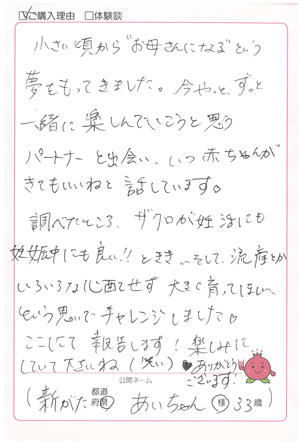 ☑ご購入理由 □体験談
小さい頃から"お母さんになる"という
夢をもってきました。今やっと、ずっと
一緒に楽しんでいこうと思う
パートナーと出会い、いつ赤ちゃんが
きてもいいねと話しています。
調べたところ、ザクロが妊活にも
妊娠中にも良い!!ときき、そして、流産とか
いろいろな心配せず大きく育ってほしい、
という思いでチャレンジしました。
ここにて報告します!楽しみに
していて下さいね(笑い)♥ありがとう
ございます!
公開ネーム
(新がた 都道府県 あいちゃん 様 33歳)